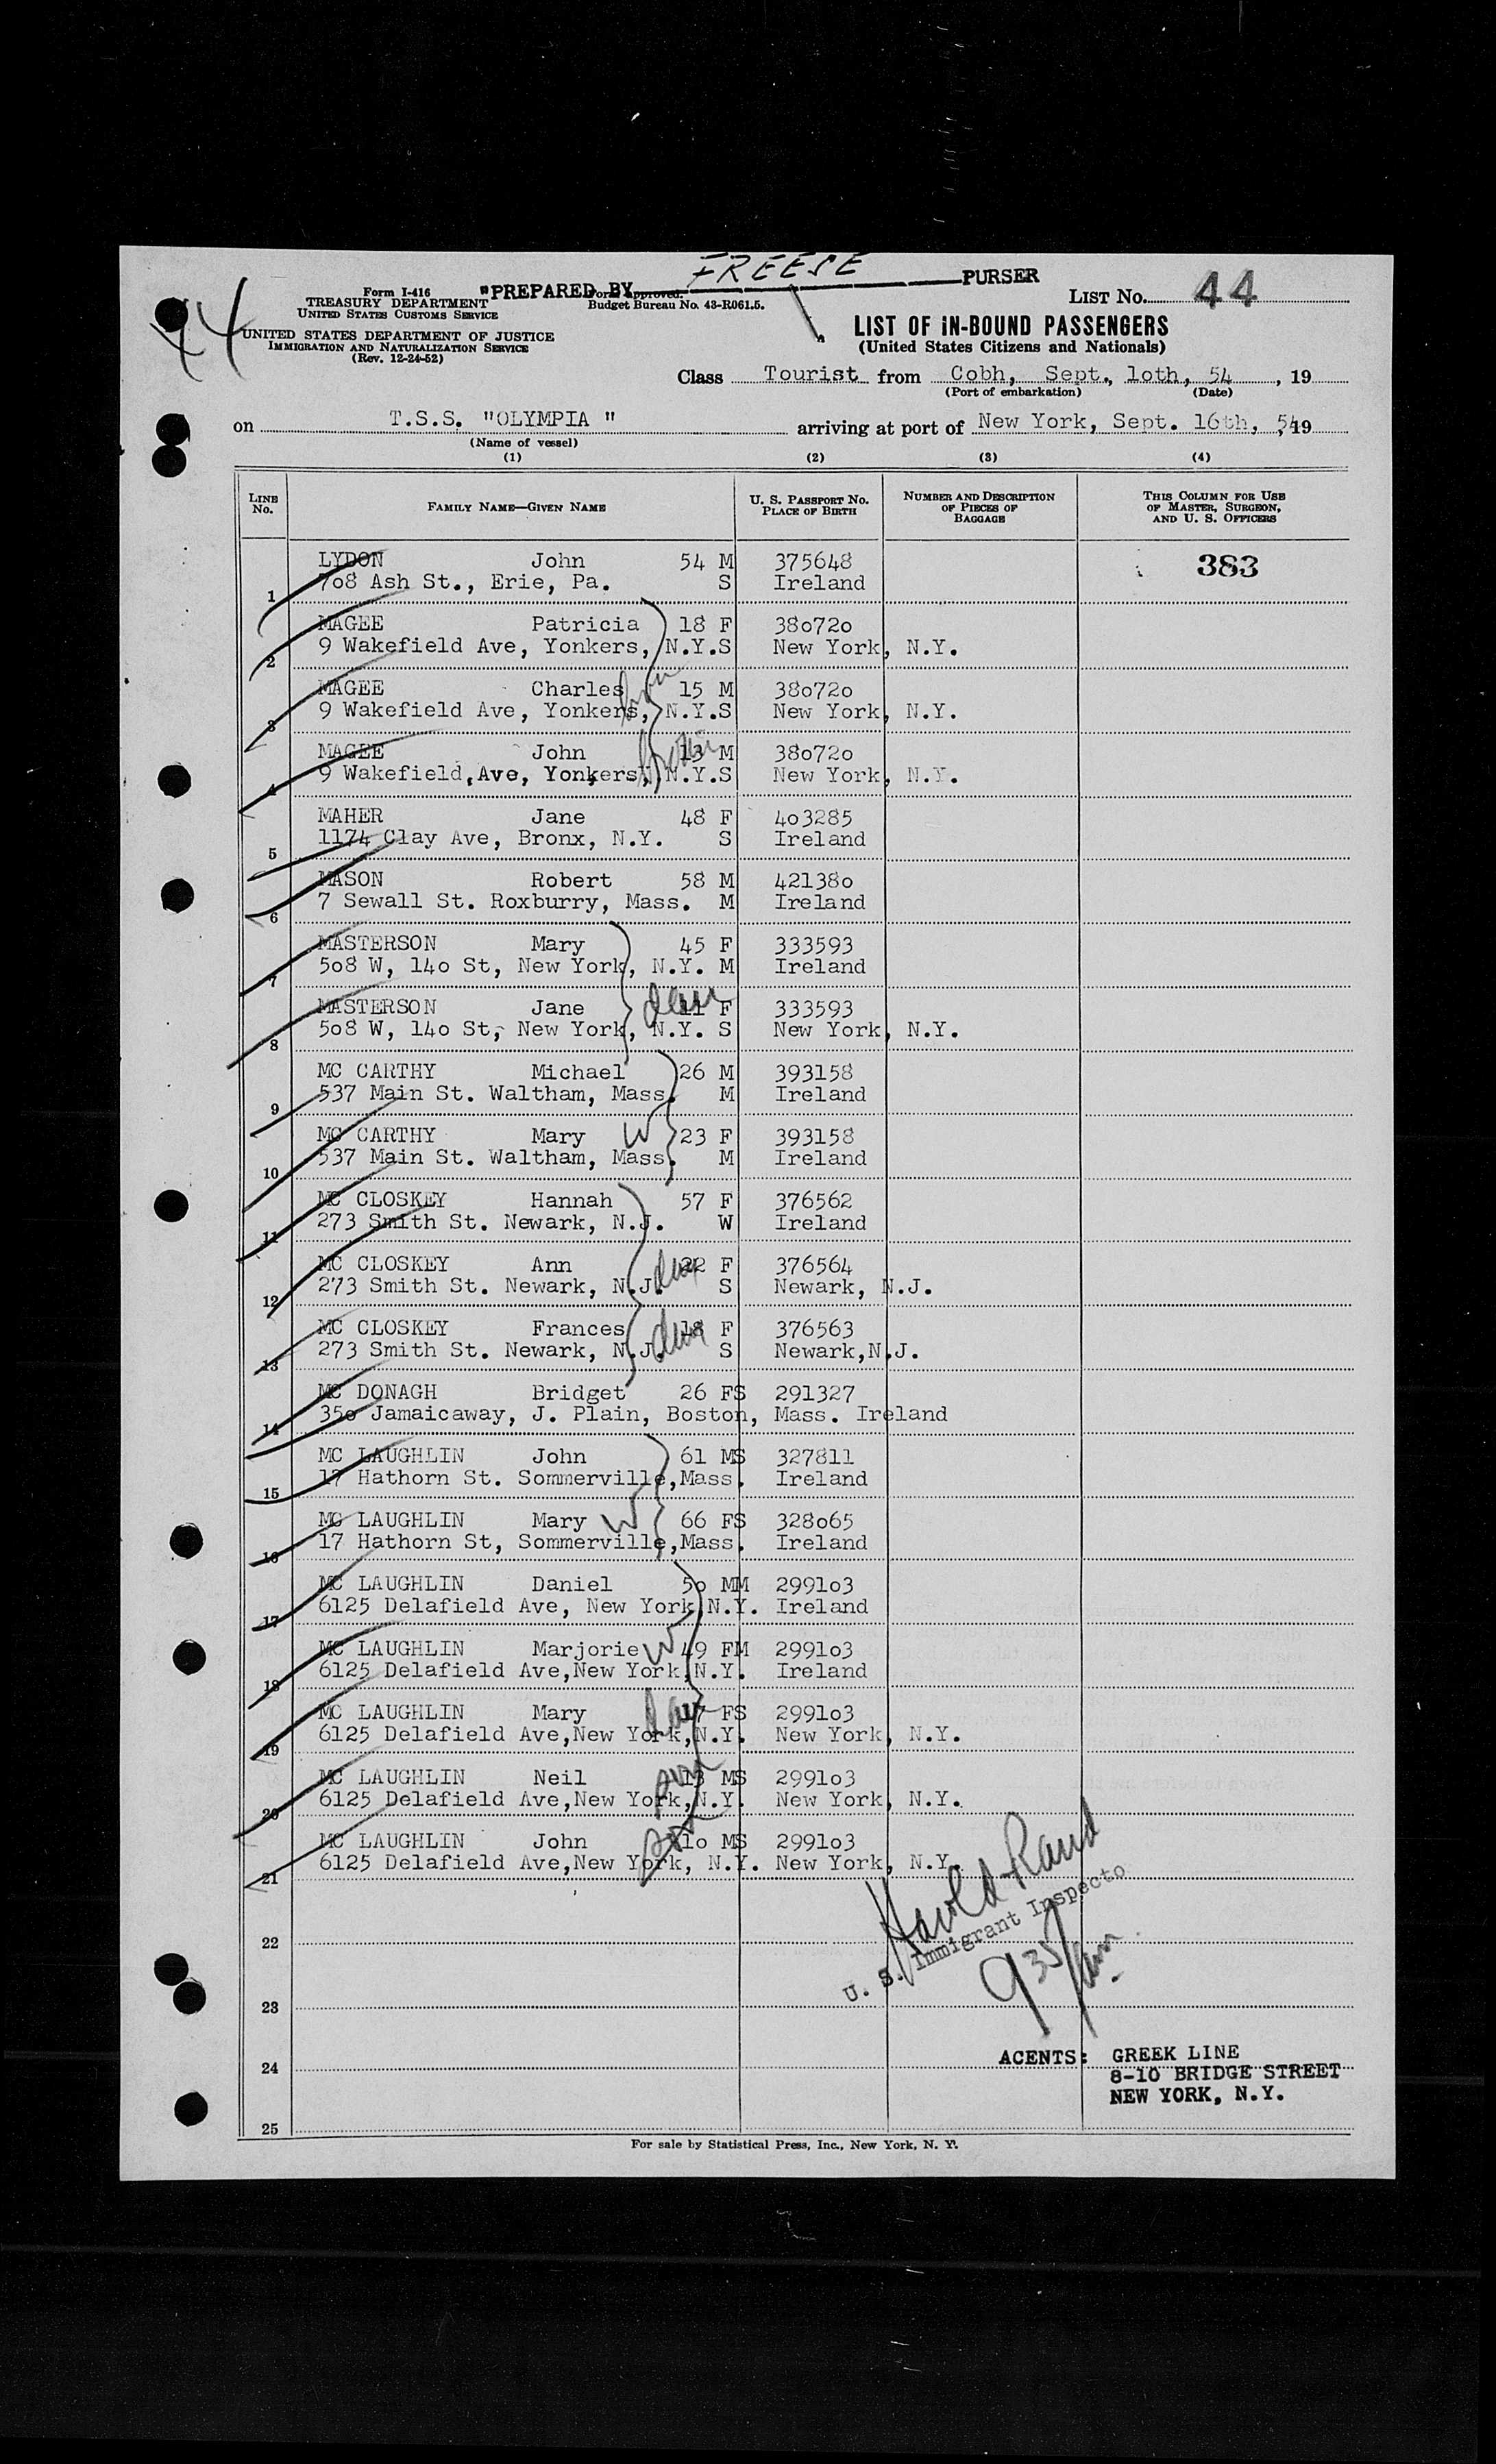 FREESE
"PREPARED BY PURSER
Form I-416
TREASURY DEPARTMENT
UNITED STATES CUSTOMS SERVICE
Form Approved.
Budget Bureau No. 43-R061.5.
LIST No. 44
44
UNITED STATES DEPARTMENT OF JUSTICE
IMMIGRATION AND NATURALIZATION SERVICE
(Rev. 12-24-52)
LIST OF IN-BOUND PASSENGERS
(United States Citizens and Nationals)
Class Tourist from Cobh, Sept., 1oth, 54, 19
(Port of embarkation) (Date)
on T.S.S. "OLYMPIA " arriving at port of New York, Sept. 16th, 54, 19
(Name of vessel)
(1) (2) (3) (4)
LINE No. FAMILY NAME—GIVEN NAME U. S. PASSPORT NO. PLACE OF BIRTH NUMBER AND DESCRIPTION OF PIECES OF BAGGAGE THIS COLUMN FOR USE OF MASTER, SURGEON, AND U. S. OFFICERS
LYDON John 54 M 375648 383
1 7o8 Ash St., Erie, Pa. S Ireland
MAGEE Patricia 18 F 38o72o
2 9 Wakefield Ave, Yonkers, N.Y.S New York, N.Y.
MAGEE Charles 15 M 38o72o
3 9 Wakefield Ave, Yonkers, N.Y.S New York, N.Y.
MAGEE John 13 M 38o72o
4 9 Wakefield,Ave, Yonkers, N.Y.S New York, N.Y.
MAHER Jane 48 F 4o3285
5 1174 Clay Ave, Bronx, N.Y. S Ireland
MASON Robert 58 M 42138o
6 7 Sewall St. Roxburry, Mass. M Ireland
MASTERSON Mary 45 F 333593
7 5o8 W, 14o St, New York, N.Y. M Ireland
MASTERSON Jane 11 F 333593
dau
8 5o8 W, 14o St, New York, N.Y. S New York, N.Y.
MC CARTHY Michael 26 M 393158
9 537 Main St. Waltham, Mass. M Ireland
MC CARTHY Mary W 23 F 393158
10 537 Main St. Waltham, Mass. M Ireland
MC CLOSKEY Hannah 57 F 376562
11 273 Smith St. Newark, N.J. W Ireland
MC CLOSKEY Ann dau 22 F 376564
12 273 Smith St. Newark, N.J. S Newark, N.J.
MC CLOSKEY Frances dau 18 F 376563
13 273 Smith St. Newark, N.J. S Newark,N.J.
MC DONAGH Bridget 26 FS 291327
14 35o Jamaicaway, J. Plain, Boston, Mass. Ireland
MC LAUGHLIN John 61 MS 327811
15 17 Hathorn St. Sommerville,Mass. Ireland
MC LAUGHLIN Mary W 66 FS 328o65
16 17 Hathorn St, Sommerville,Mass. Ireland
MC LAUGHLIN Daniel 5o MM 2991o3
17 6125 Delafield Ave, New York,N.Y. Ireland
MC LAUGHLIN Marjorie W 49 FM 2991o3
18 6125 Delafield Ave,New York,N.Y. Ireland
MC LAUGHLIN Mary dau 17 FS 2991o3
19 6125 Delafield Ave,New York,N.Y. New York, N.Y.
MC LAUGHLIN Neil son 13 MS 2991o3
20 6125 Delafield Ave,New York,N.Y. New York, N.Y.
MC LAUGHLIN John son 1o MS 2991o3
21 6125 Delafield Ave,New York, N.Y. New York, N.Y.
Harold Rand
22
U. S. Immigrant Inspecto
935/am
23
24
AGENTS: GREEK LINE
8-10 BRIDGE STREET
NEW YORK, N.Y.
25
For sale by Statistical Press, Inc., New York, N. Y.